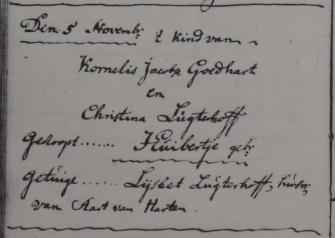 Den 5 Novembr. 't kind van
Kornelis Jacobz Goedhart
en
Christina Lugtehoff
Gedoopt...... Huibertje gebr.
Getuige...... Lijsbet Lugtehoff, huisvr,
van Aart van Harten.